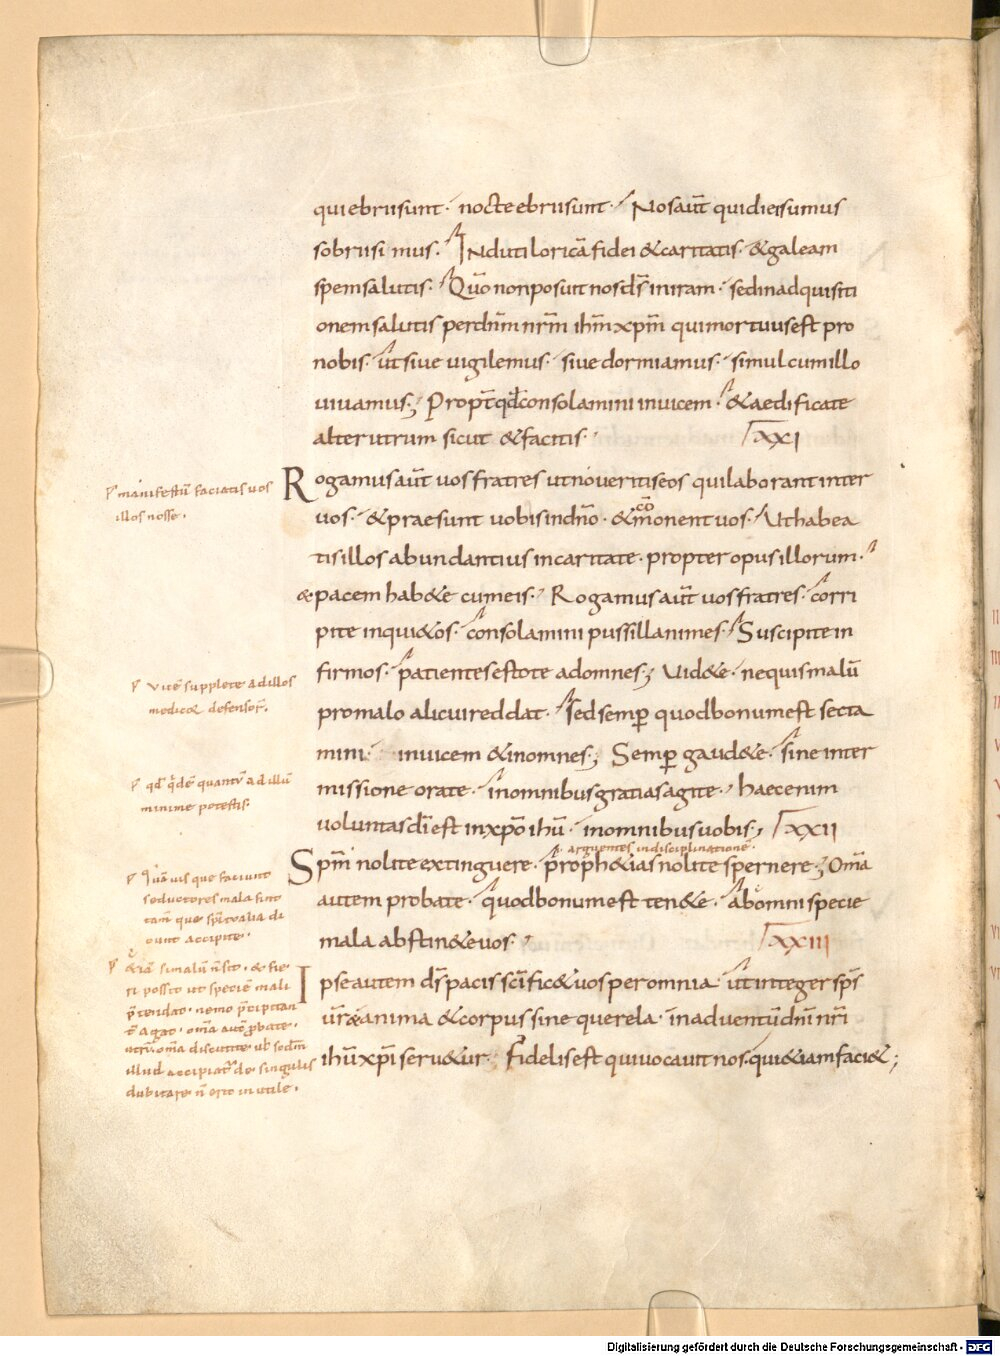 qui ebrii sunt · nocte ebrii sunt · Nos aut̄ qui diei sumus
sobrii simus · Induti loricā fidei & caritatis · & galeam
spem salutis · Qūo non posuit nos d̄s in iram · sed in adquisiti
onem salutis per dn̄m nr̄m ihm̄ xpm̄ qui mortuus est pro
nobis · ut sive vigilemus · sive dormiamus · simul cum illo
vivamus; Propt̄ qd̄ consolamini invicem · & aedificate
alterutrum sicut & facitis · XXI
Rogamus aut̄ vos fratres ut noveritis eos qui laborant inter
vos · & praesunt vobis in dn̄o · & mōnent vos · Ut habea
tis illos abundantius in caritate · propter opus illorum ·
& pacem hab&e cum eis · Rogamus aut̄ vos fratres · corri
pite inqui&os · consolamini pussillanimes · Suscipite in
firmos · patientes estote ad omnes; Uid&e · ne quis malū
pro malo alicui reddat · sed semp̄ quod bonum est secta
mini · invicem & in omnes; Semp̄ gaud&e · sine inter
missione orate · in omnibus gratias agite · haec enim
voluntas dī est in xp̄o ihū · in omnibus vobis; XXII
arguentes in disciplinatione ·
Spm̄ nolite extinguere · proph&ias nolite spernere; Om̄a
autem probate · quod bonum est ten&e · Ab omni specie
mala abstin&e vos · XXIII
Ipse autem d̄s pacis sc̄ific&vos per omnia · ut integer sp̄s
ur̄ & anima & corpus sine querela · in adventū dn̄i nr̄i
ihū xp̄i serv&ur · Fidelis est qui vocavit nos · qui & iam faci&;
manifestū faciatis vos
illos nosse ·
vicē supplete ad illos
medici & defensor̄ ·
qd̄ quantū ad illū
minime potestis ·
Quāvis que faciunt
seductores mala sint
tam̄ que spiritalia di
cunt accipite ·
&iā si malū n̄ sit · & fie
ri possit ut speciē mali
p̄tendat · nemo p̄cipitan
t̄ agat · om̄a aut̄ p̄bate ·
utrū om̄a discutite
illud accipiat̄ de singulis
dubitare n̄ erit inutile ·
Digitalisierung gefördert durch die Deutsche Forschungsgemeinschaft - DFG